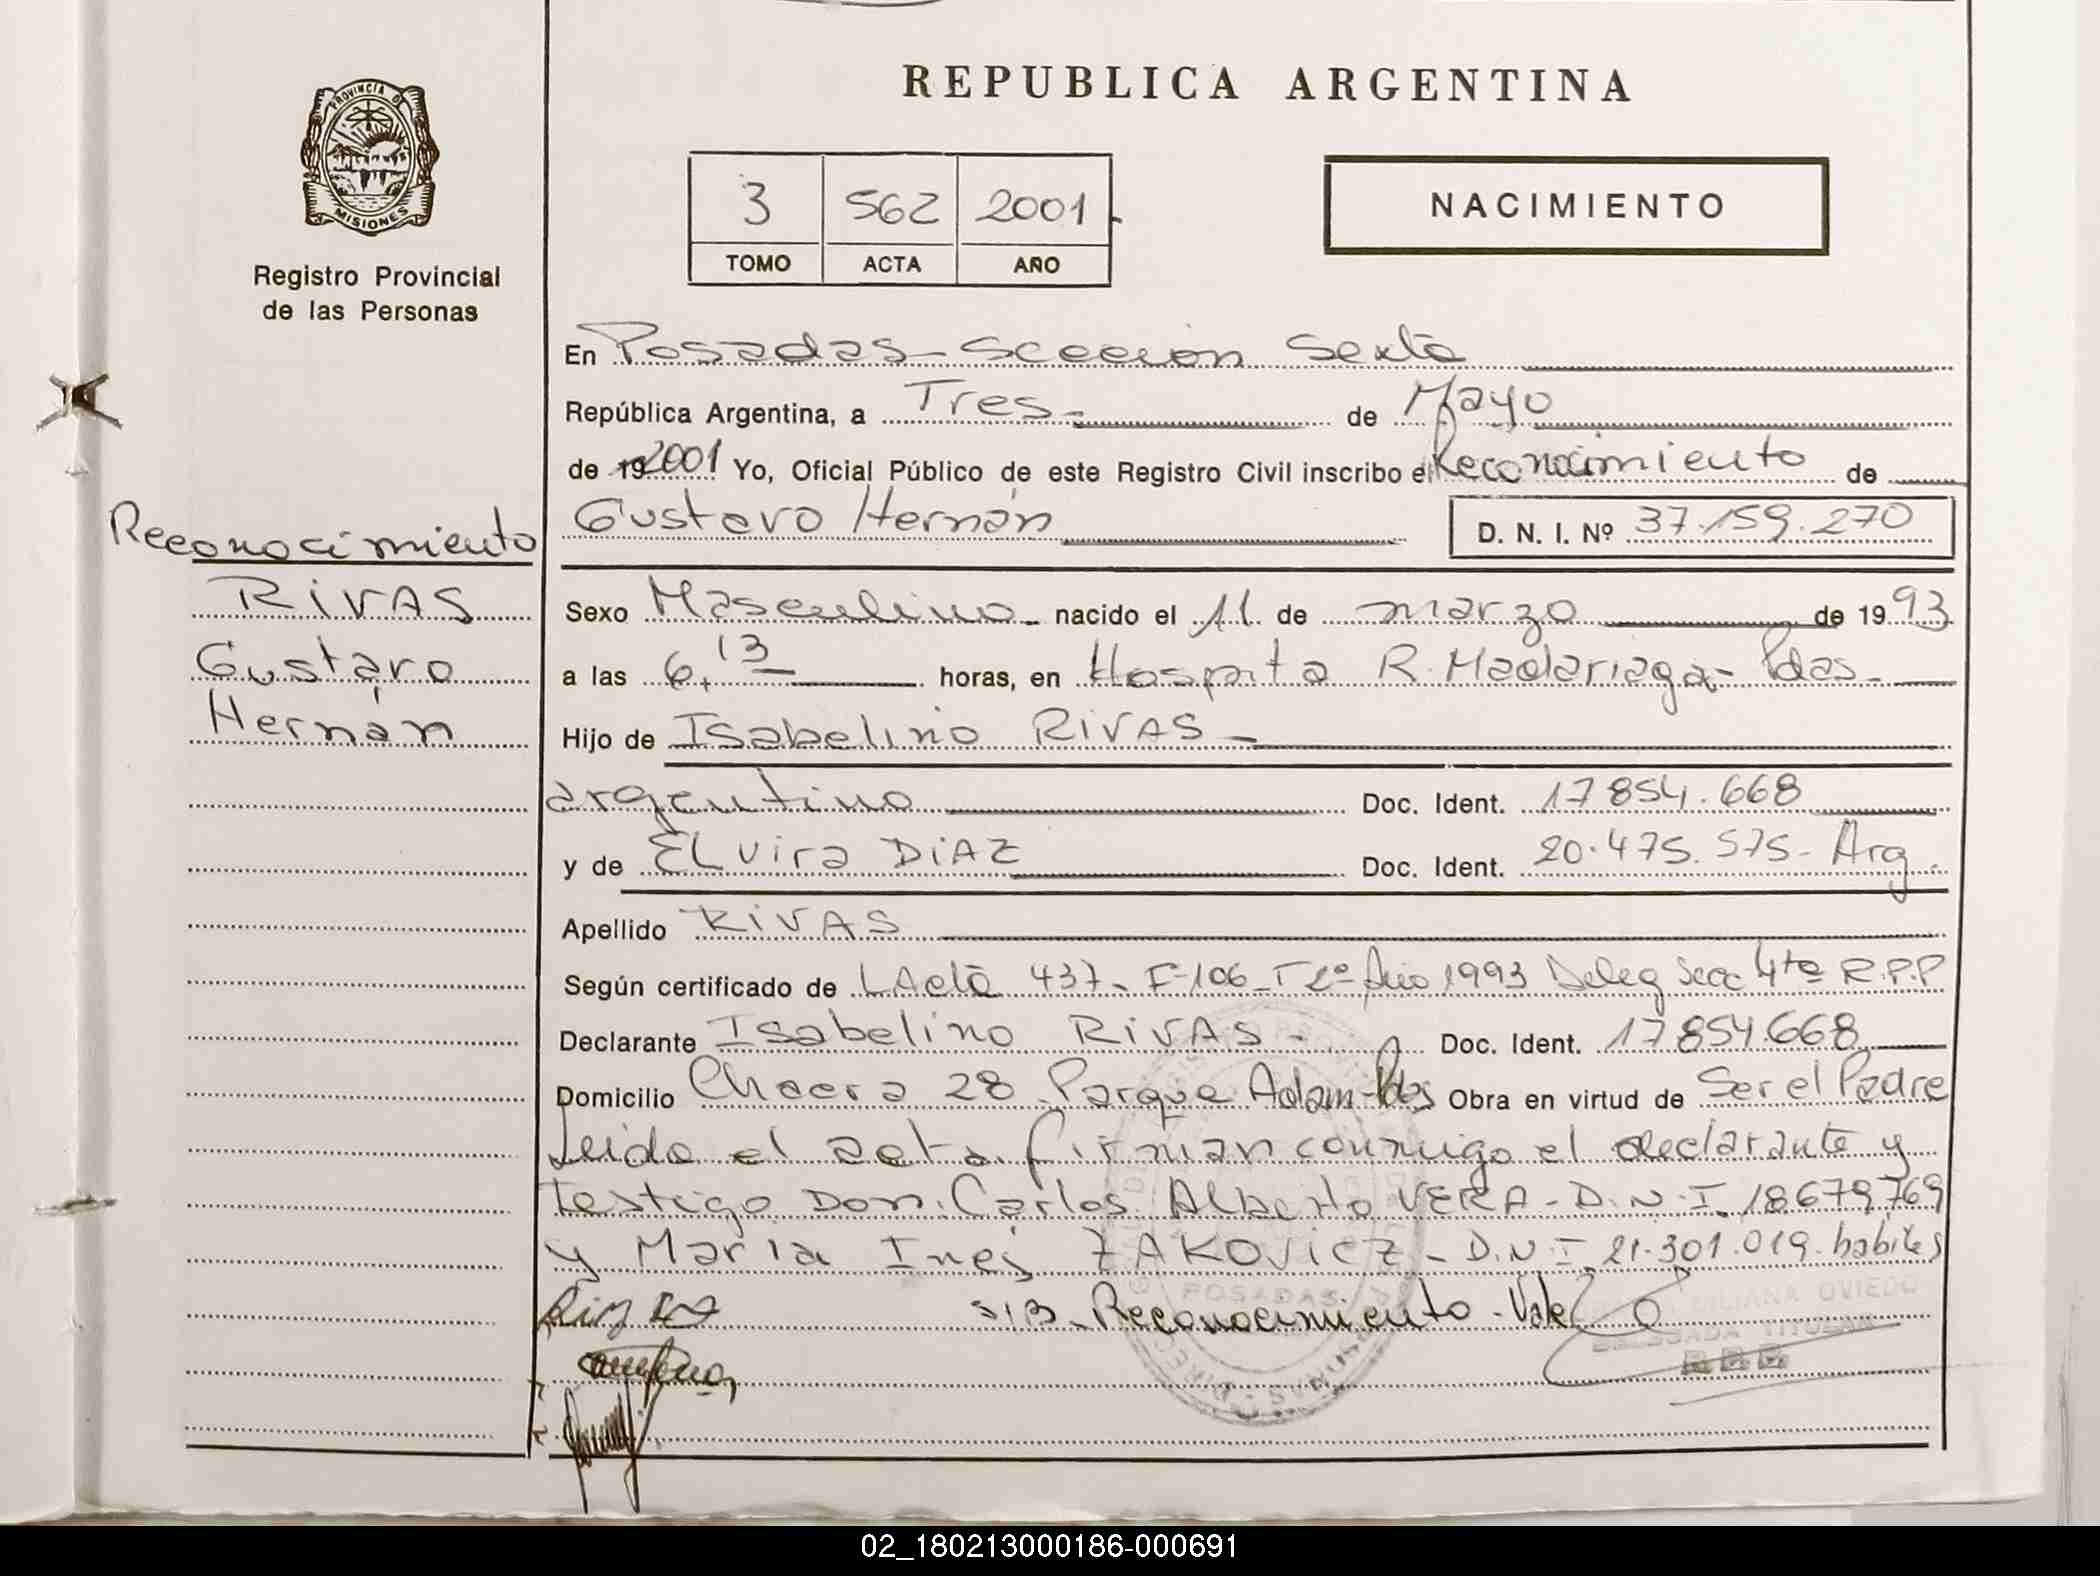 PROVINCIA D
MISIONES
Registro Provincial
de las Personas
REPUBLICA ARGENTINA
3 562 2001
TOMO ACTA AÑO
NACIMIENTO
En Posadas - Sección Sexta
República Argentina, a Tres - de Mayo
de 19 2001 Yo, Oficial Público de este Registro Civil inscribo el Reconocimiento de
Gustavo Hernán D. N. I. Nº 37.159.270
Reconocimiento
RIVAS
Gustavo
Hernán
Sexo Masculino nacido el 11 de marzo de 1993
a las 6,13 horas, en Hospita R. Madariaga - Pdas -
Hijo de Isabelino RIVAS -
argentino Doc. Ident. 17854.668
y de ELvira DIAZ Doc. Ident. 20.475.575 - Arg.
Apellido RIVAS
Según certificado de Acta 437 - F-106 - T 2º Año 1993 Deleg Secc 4ta R.P.P
Declarante Isabelino RIVAS - Doc. Ident. 17.854.668
Domicilio Chacra 28 Parque Adam - Pdas Obra en virtud de Ser el Padre
Leida el acta firman conmigo el declarante y
testigo Don Carlos Alberto VERA - D.N.I. 18679,769
y Maria Inés ZAKOVICZ - D.N.I 21.301.019. habiles
S/B - Reconocimiento - Vale
POSADAS
LILIANA OVIEDO
TITULAR
02_180213000186-000691